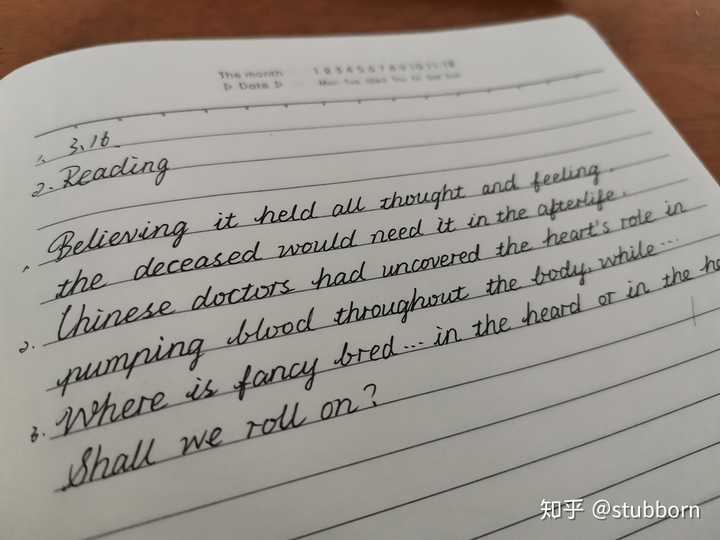 The month 1 2 3 4 5 6 7 8 9 10 11 12
Date Mon Tue Wed Thu Fri Sat Sun
1. 3.16
2. Reading
1. Believing it held all thought and feeling.
the deceased would need it in the afterlife.
2. Chinese doctors had uncovered the heart's role in
pumping blood throughout the body, while...
3. Where is fancy bred... in the heard or in the
Shall we roll on?
知乎 @stubborn